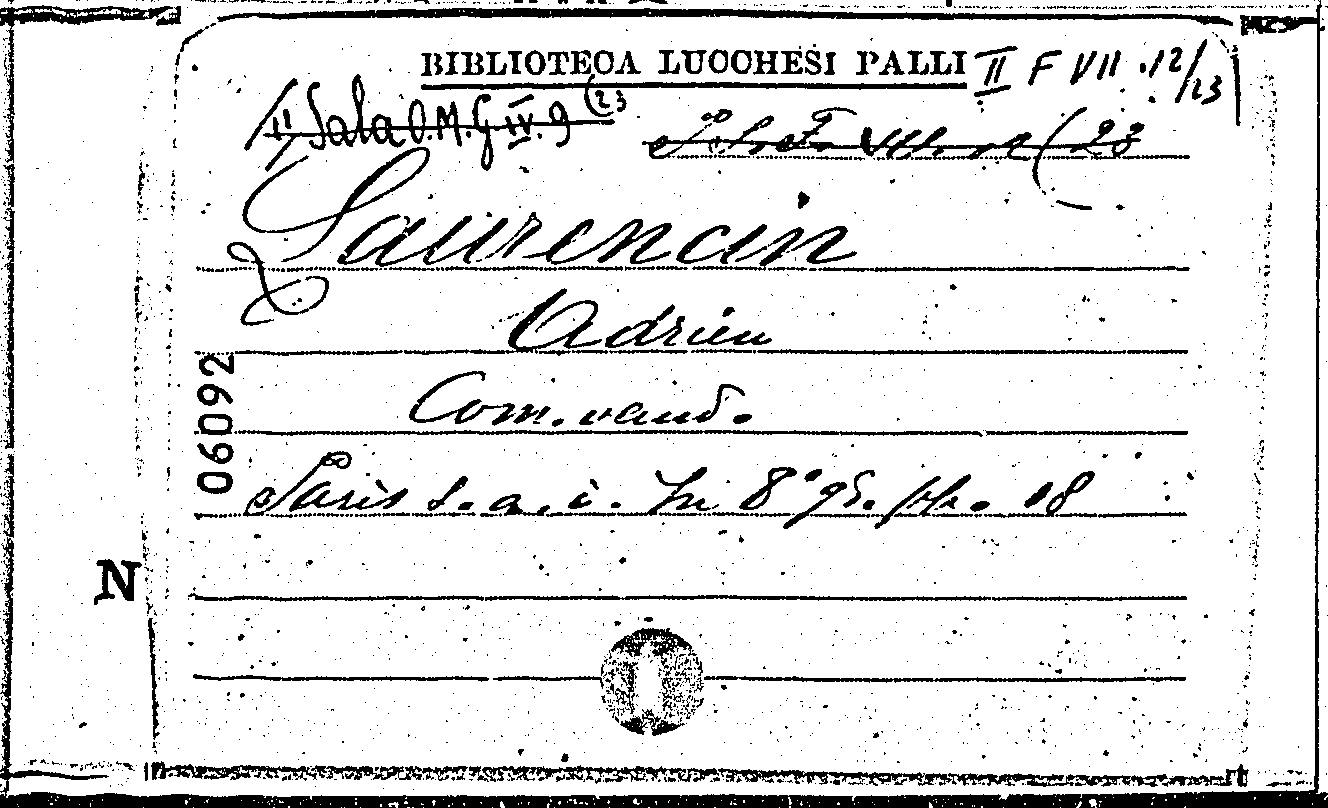 BIBLIOTECA LUCCHESI PALLI II F VII .12/23
II Sala O.M.G IV. 9 (23
Laurencin
Adrien
Com. vaud.
06092
Paris s. a. i. In 8° pp. 18
N